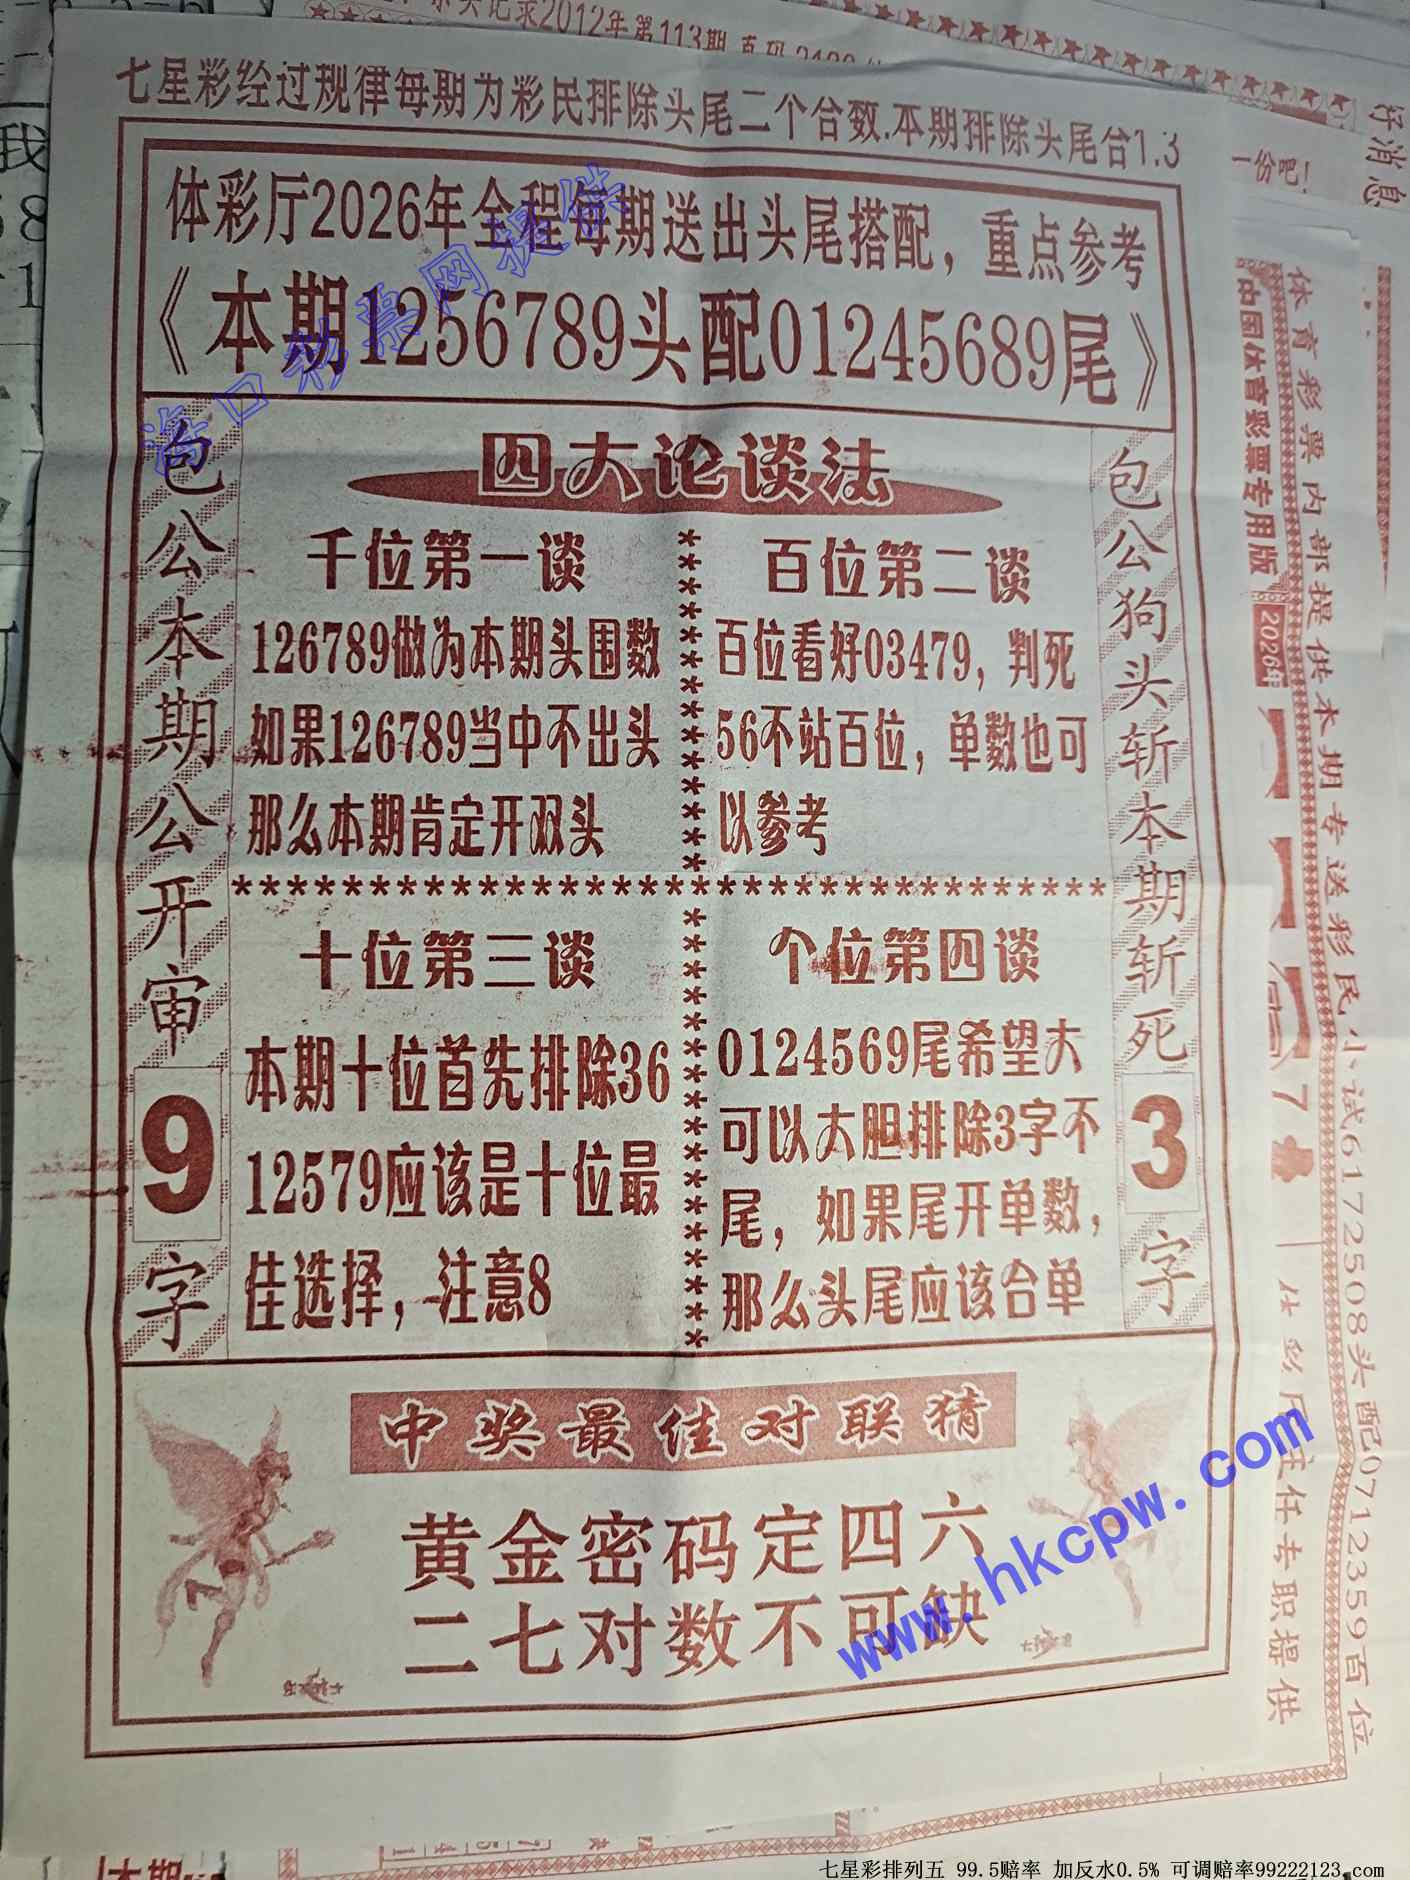 七星彩经过规律每期为彩民排除头尾二个合数.本期排除头尾合1.3
体彩厅2026年全程每期送出头尾搭配，重点参考
《本期1256789头配01245689尾》
四大论谈法
千位第一谈
126789做为本期头围数
如果126789当中不出头
那么本期肯定开双头
百位第二谈
百位看好03479，判死
56不站百位，单数也可
以参考
十位第三谈
本期十位首先排除36
12579应该是十位最
佳选择，注意8
个位第四谈
0124569尾希望大
可以大胆排除3字不
尾，如果尾开单数，
那么头尾应该合单
包公本期公开审9字
包公狗头斩本期斩死3字
中奖最佳对联猜
黄金密码定四六
二七对数不可缺
海口彩票网提供
www.hkcpw.com
好消息
一份吧！
中国体育彩票专用版
2026年
体育彩票内部提供本期专送彩民小试6172508头配0712359百位
录2012年第113期
七星彩排列五 99.5赔率 加反水0.5% 可调赔率99222123.com